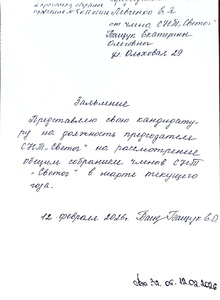 правления № 5 и Носин Левченко В.Я
от члена СНТ „Светоч"
Пащук Екатерины
Олеговны
ул. Ольховая 29
Заявление
Представляю свою кандидату-
ру на должность председателя
СНТ „Светоч" на рассмотрение
общим собранием членов СНТ
„Светоч" в марте текущего
года.
12 февраля 2026г. Пащук Е.О.
12.02.2026